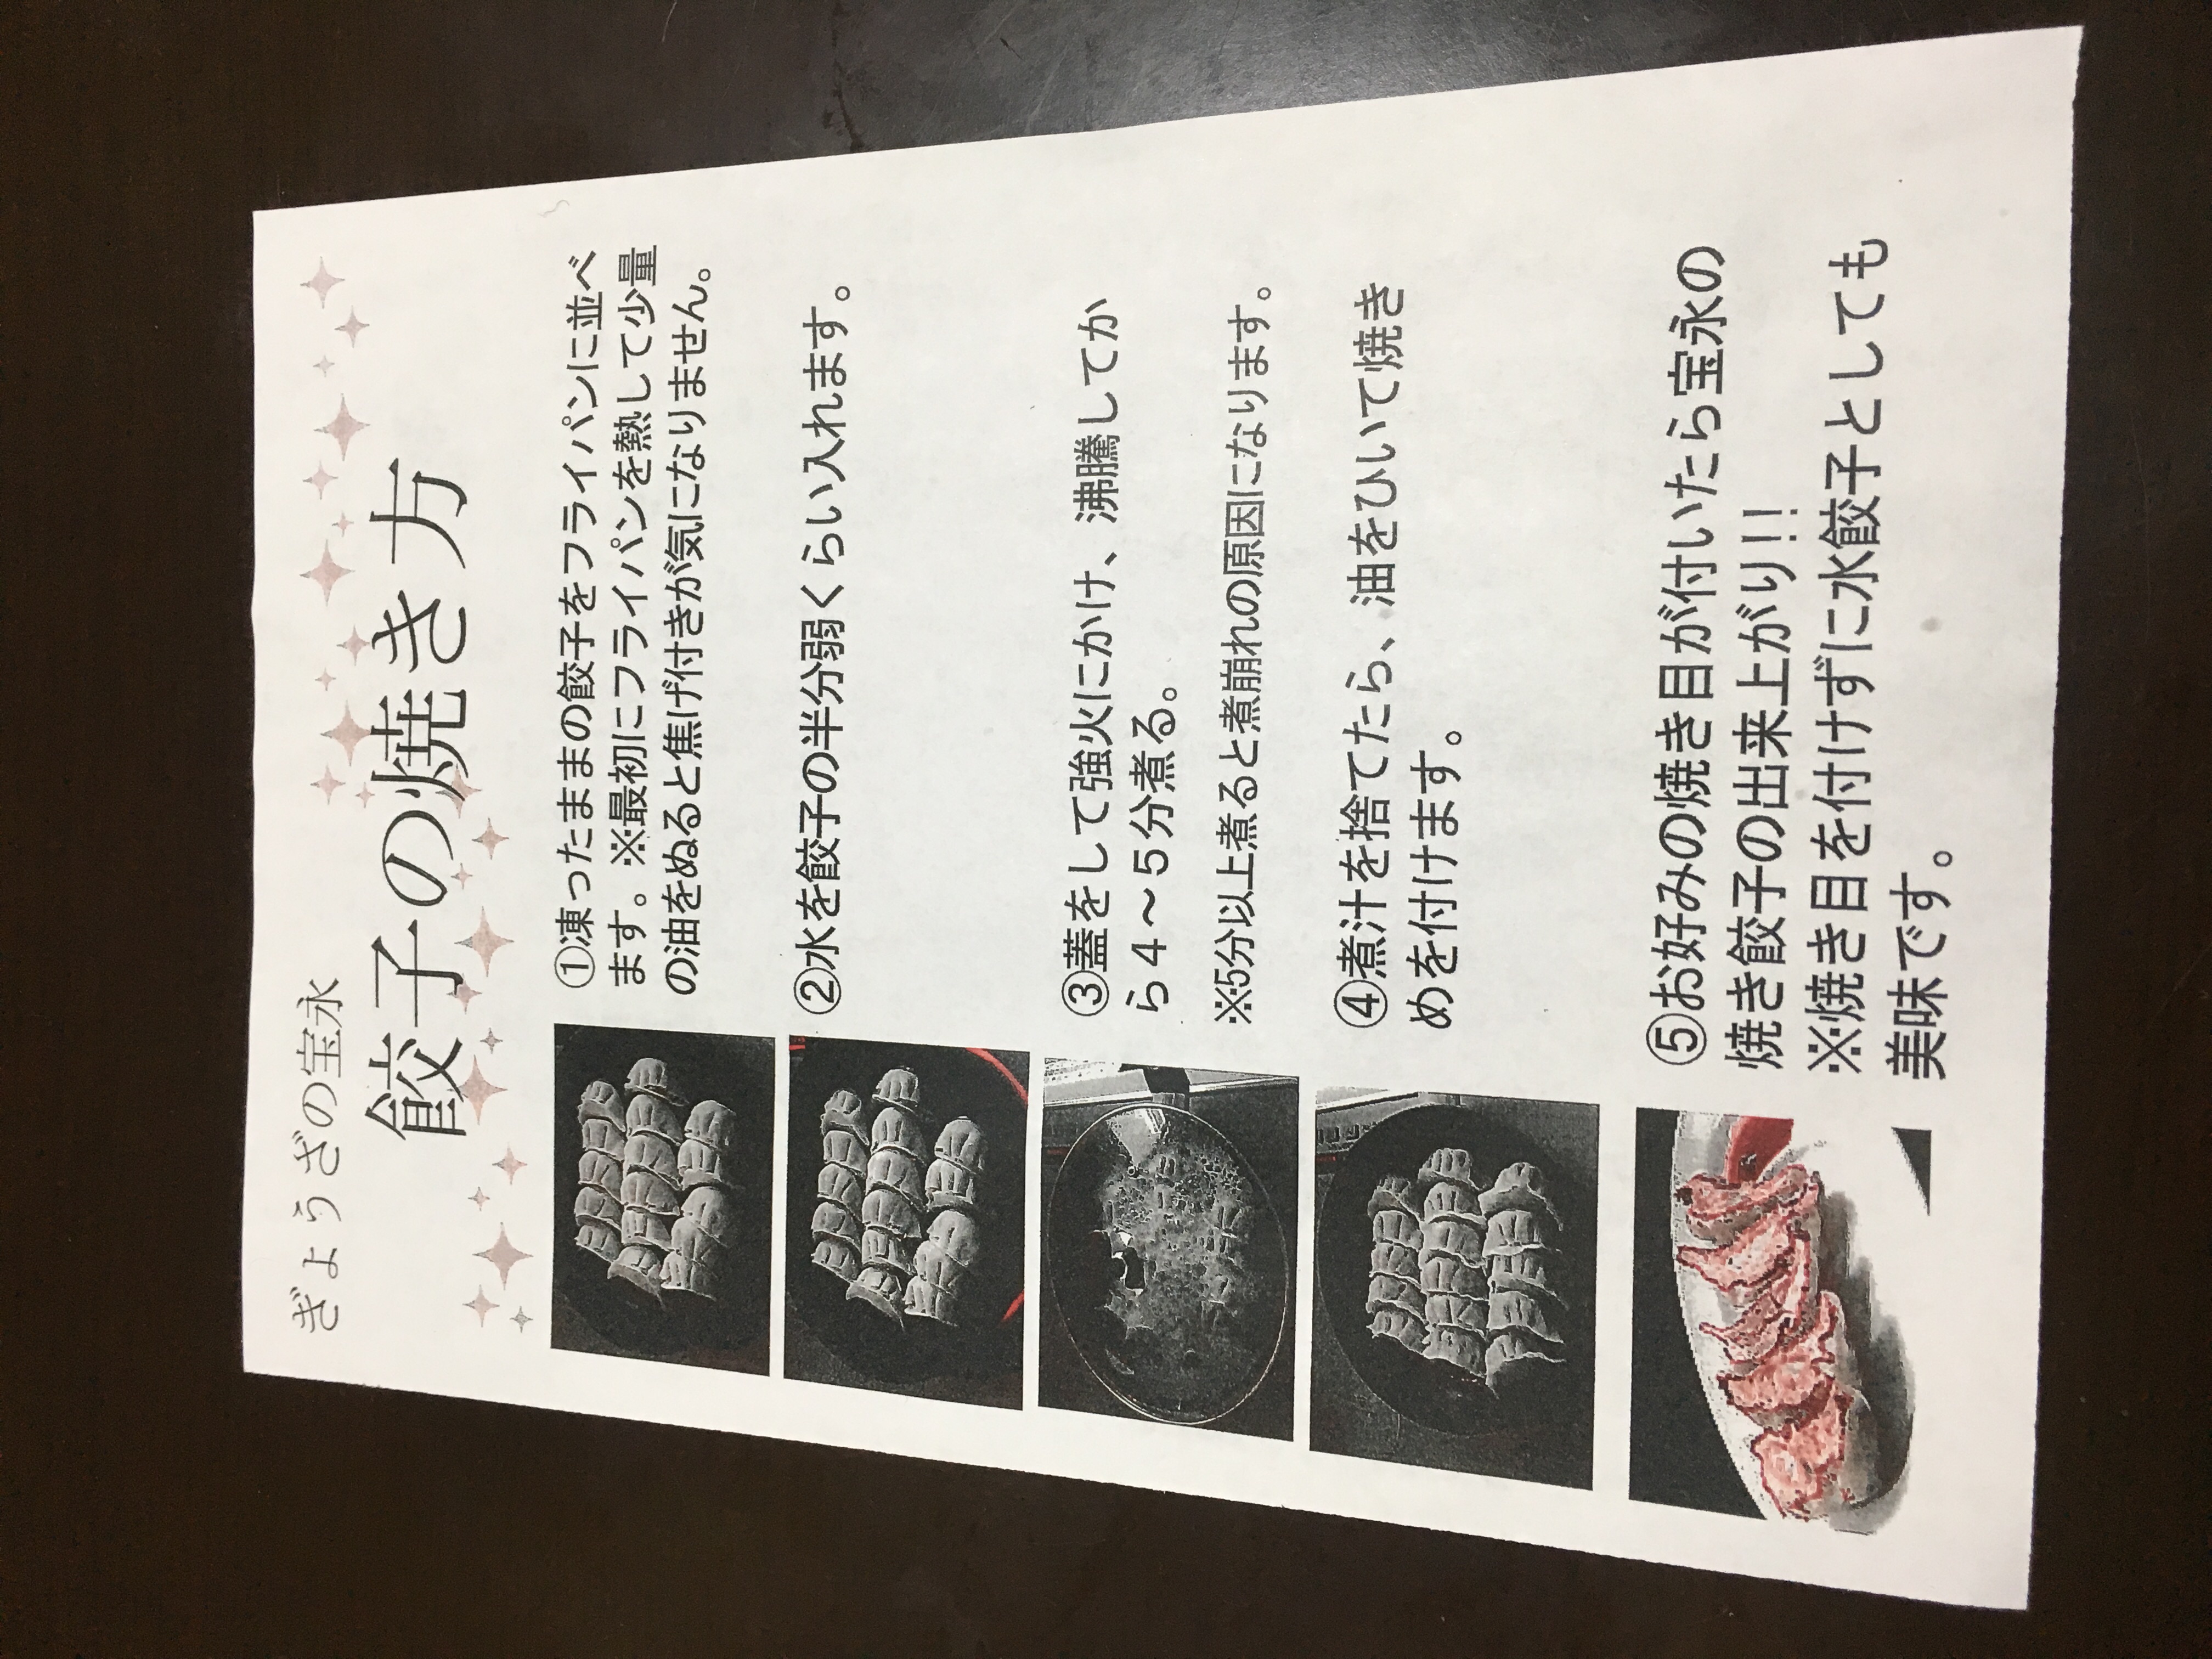 ぎょうざの宝永
餃子の焼き方
①凍ったままの餃子をフライパンに並べ
ます。※最初にフライパンを熱して少量
の油をぬると焦げ付きが気になりません。
②水を餃子の半分弱くらい入れます。
③蓋をして強火にかけ、沸騰してか
ら４～５分煮る。
※5分以上煮ると煮崩れの原因になります。
④煮汁を捨てたら、油をひいて焼き
めを付けます。
⑤お好みの焼き目が付いたら宝永の
焼き餃子の出来上がり!!
※焼き目を付けずに水餃子としても
美味です。